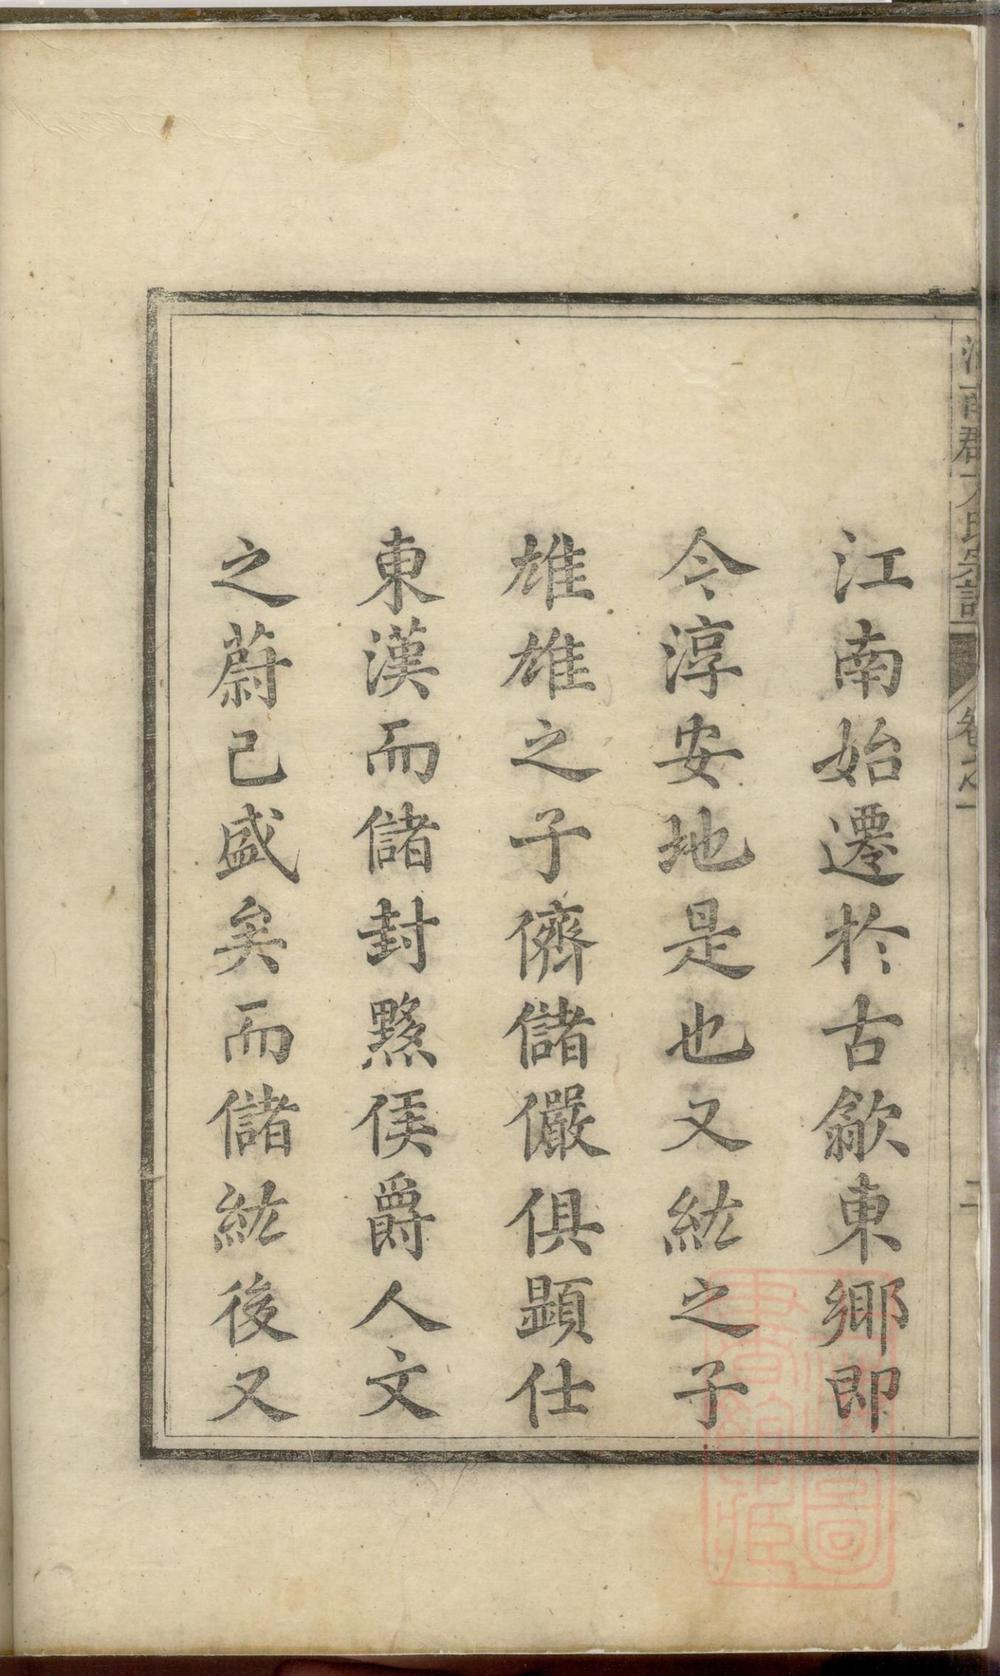 江南始遷於古歙東鄉即
今淳安地是也又紘之子
雄雄之子儕儲儼俱顯仕
東漢而儲封黟侯爵人文
之蔚已盛矣而儲紘後又
南郡方氏宗譜
卷之一
二